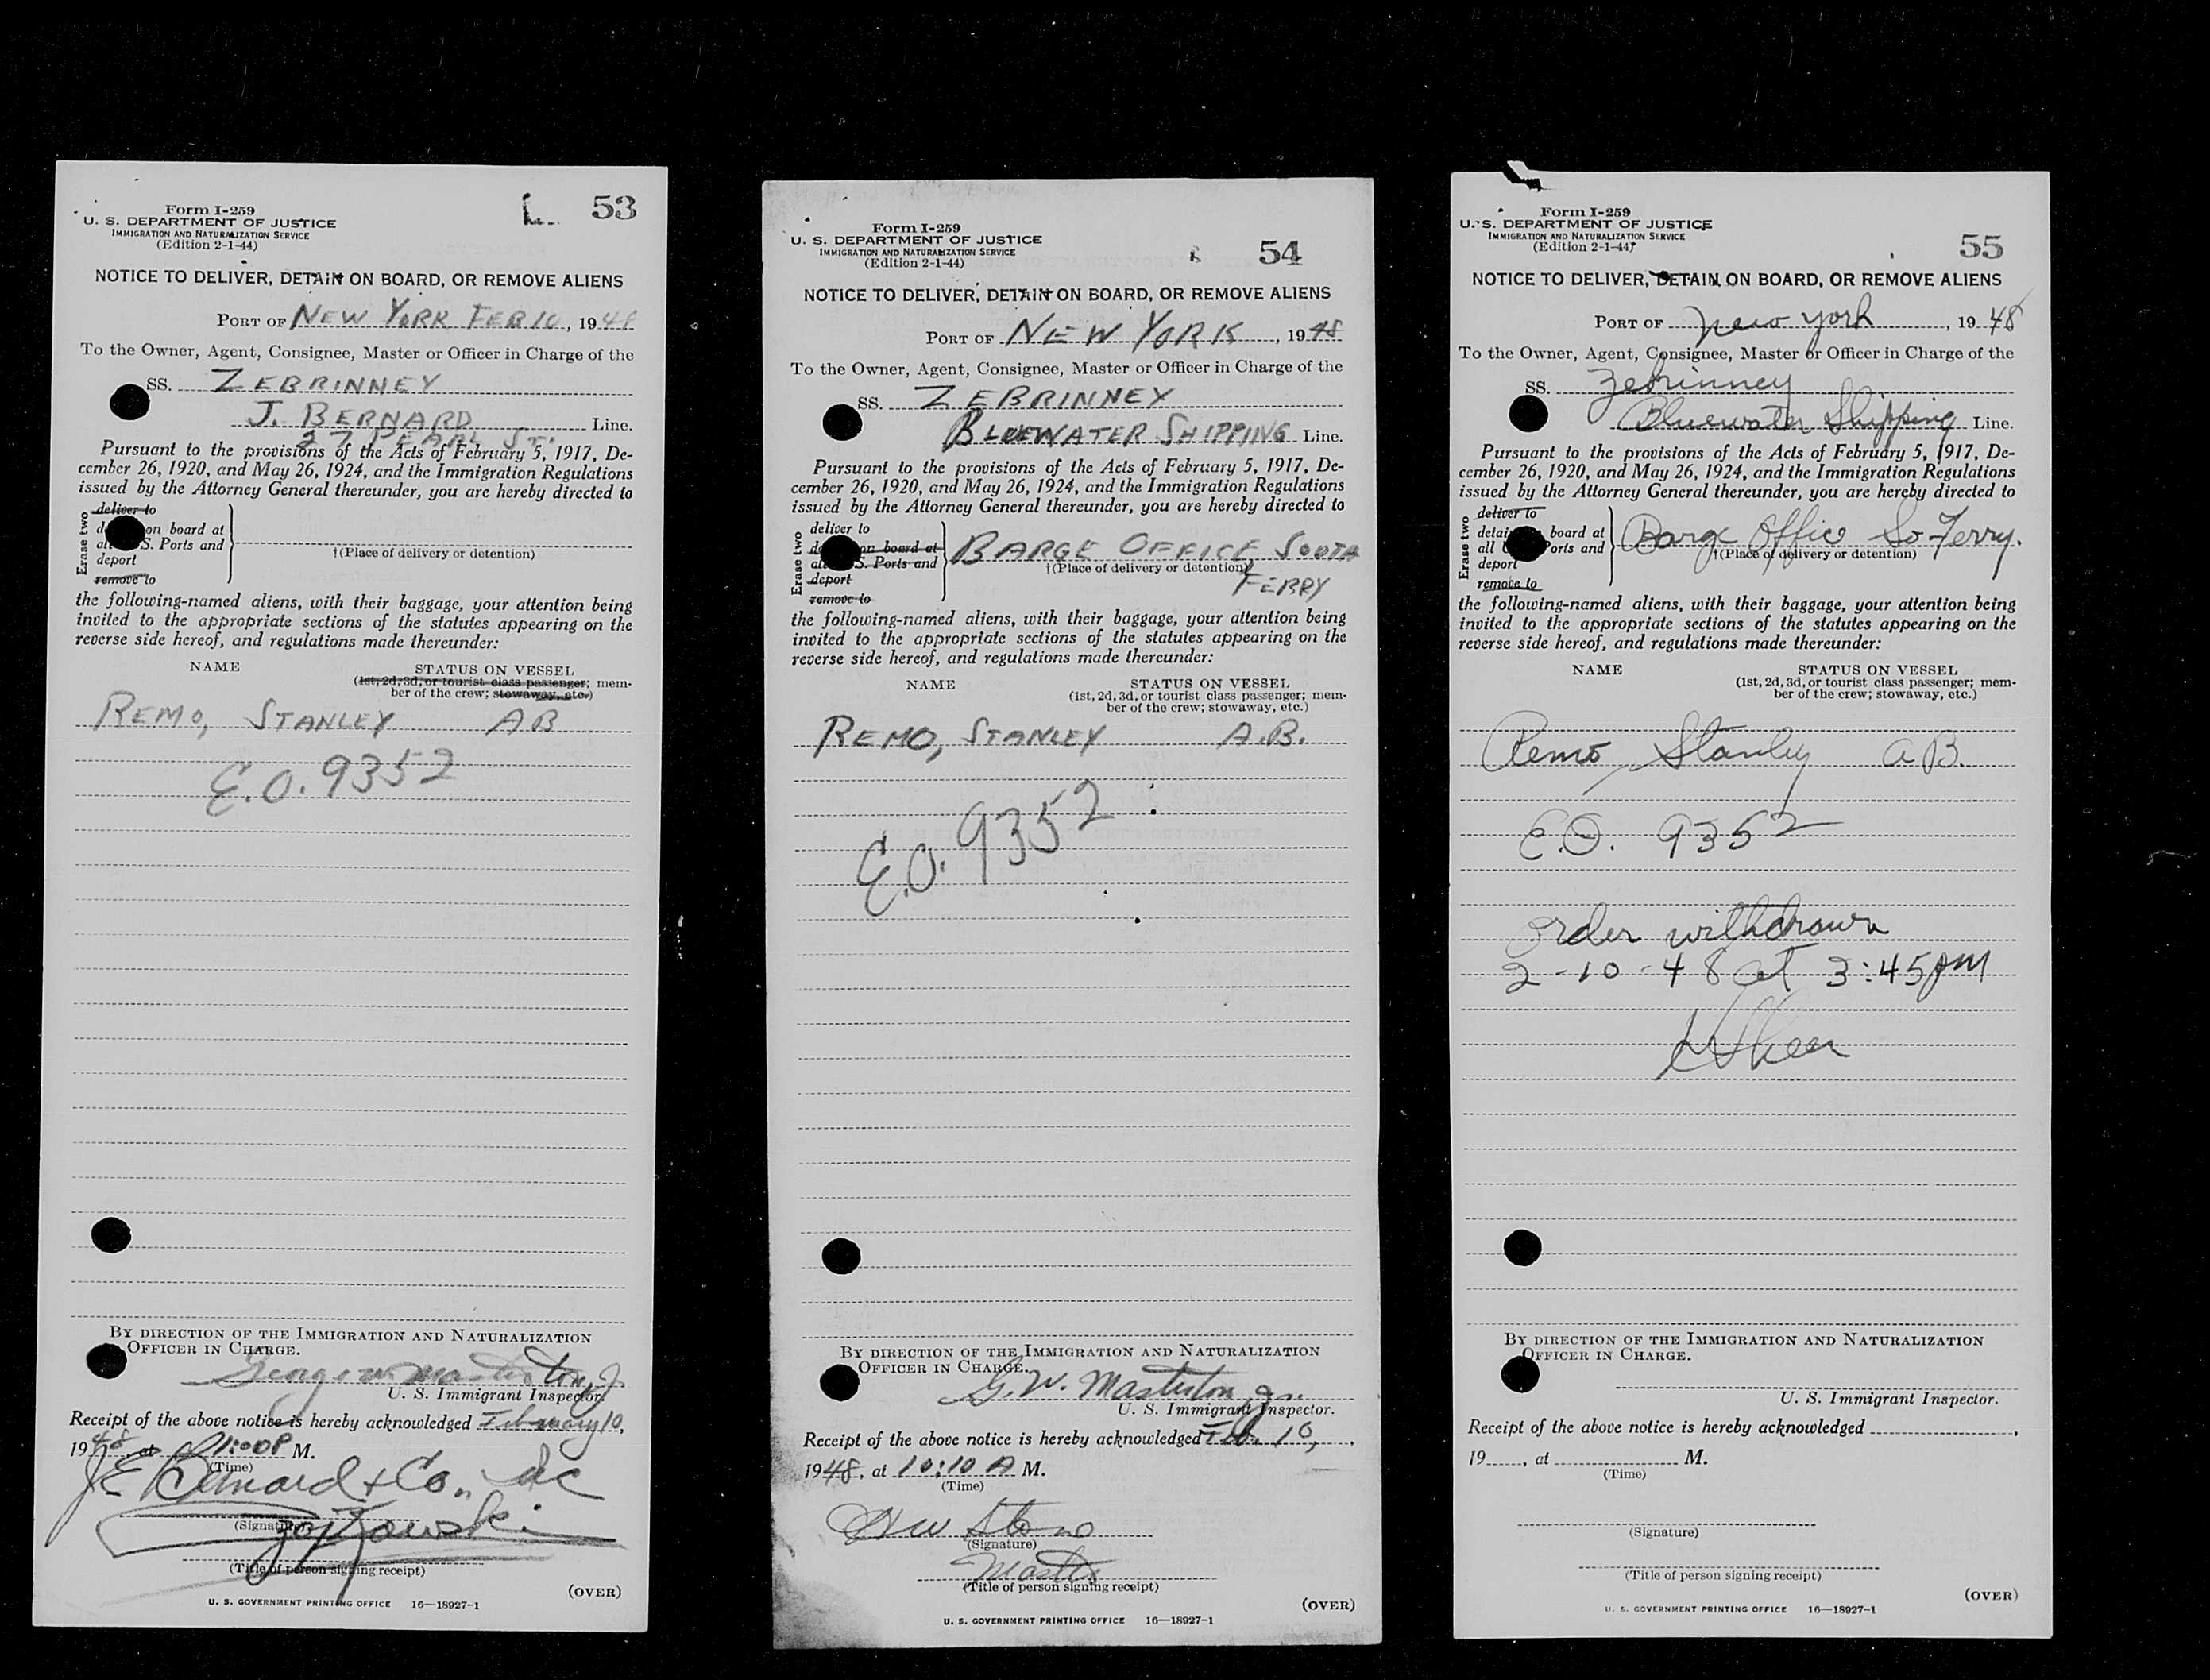 L. 53
Form I-259
U. S. DEPARTMENT OF JUSTICE
IMMIGRATION AND NATURALIZATION SERVICE
(Edition 2-1-44)
NOTICE TO DELIVER, DETAIN ON BOARD, OR REMOVE ALIENS
PORT OF NEW YORK FEB 10, 1948
To the Owner, Agent, Consignee, Master or Officer in Charge of the
SS. ZEBRINNEY
J. BERNARD Line.
27 PEARL ST.
Pursuant to the provisions of the Acts of February 5, 1917, De-
cember 26, 1920, and May 26, 1924, and the Immigration Regulations
issued by the Attorney General thereunder, you are hereby directed to
Erase two
deliver to
on board at
S. Ports and
deport
remove to
†(Place of delivery or detention)
the following-named aliens, with their baggage, your attention being
invited to the appropriate sections of the statutes appearing on the
reverse side hereof, and regulations made thereunder:
NAME STATUS ON VESSEL
(1st, 2d, 3d, or tourist class passenger; mem-
ber of the crew; stowaway, etc.)
REMO, STANLEY AB
E.O. 9352
BY DIRECTION OF THE IMMIGRATION AND NATURALIZATION
OFFICER IN CHARGE.
George W. Masterton, Jr.
U. S. Immigrant Inspector.
Receipt of the above notice is hereby acknowledged February 10,
1948, at 1:00 P M.
(Time)
J E Bernard & Co., Inc
(Signature)
(Title of person signing receipt)
(OVER)
U. S. GOVERNMENT PRINTING OFFICE 16—18927-1
54
Form I-259
U. S. DEPARTMENT OF JUSTICE
IMMIGRATION AND NATURALIZATION SERVICE
(Edition 2-1-44)
NOTICE TO DELIVER, DETAIN ON BOARD, OR REMOVE ALIENS
PORT OF NEW YORK, 1948
To the Owner, Agent, Consignee, Master or Officer in Charge of the
SS. ZEBRINNEY
BLUEWATER SHIPPING Line.
Pursuant to the provisions of the Acts of February 5, 1917, De-
cember 26, 1920, and May 26, 1924, and the Immigration Regulations
issued by the Attorney General thereunder, you are hereby directed to
Erase two
deliver to
on board at
S. Ports and
deport
remove to
BARGE OFFICE SOUTH
†(Place of delivery or detention)
FERRY
the following-named aliens, with their baggage, your attention being
invited to the appropriate sections of the statutes appearing on the
reverse side hereof, and regulations made thereunder:
NAME STATUS ON VESSEL
(1st, 2d, 3d, or tourist class passenger; mem-
ber of the crew; stowaway, etc.)
REMO, STANLEY A.B.
E.O. 9352
BY DIRECTION OF THE IMMIGRATION AND NATURALIZATION
OFFICER IN CHARGE.
G. W. Masterton Jr.
U. S. Immigrant Inspector.
Receipt of the above notice is hereby acknowledged Feb. 10,
1948, at 10:10 A M.
(Time)
(Signature)
Master
(Title of person signing receipt)
(OVER)
U. S. GOVERNMENT PRINTING OFFICE 16—18927-1
55
Form I-259
U. S. DEPARTMENT OF JUSTICE
IMMIGRATION AND NATURALIZATION SERVICE
(Edition 2-1-44)
NOTICE TO DELIVER, DETAIN ON BOARD, OR REMOVE ALIENS
PORT OF New York, 1948
To the Owner, Agent, Consignee, Master or Officer in Charge of the
SS. Zebrinney
Bluewater Shipping Line.
Pursuant to the provisions of the Acts of February 5, 1917, De-
cember 26, 1920, and May 26, 1924, and the Immigration Regulations
issued by the Attorney General thereunder, you are hereby directed to
Erase two
deliver to
board at
all Ports and
deport
remove to
Barge Office So Ferry.
†(Place of delivery or detention)
the following-named aliens, with their baggage, your attention being
invited to the appropriate sections of the statutes appearing on the
reverse side hereof, and regulations made thereunder:
NAME STATUS ON VESSEL
(1st, 2d, 3d, or tourist class passenger; mem-
ber of the crew; stowaway, etc.)
Remo, Stanley A B.
E.O. 9352
Order withdrawn
2-10-48 at 3:45 PM
BY DIRECTION OF THE IMMIGRATION AND NATURALIZATION
OFFICER IN CHARGE.
U. S. Immigrant Inspector.
Receipt of the above notice is hereby acknowledged ,
19 , at M.
(Time)
(Signature)
(Title of person signing receipt)
(OVER)
U. S. GOVERNMENT PRINTING OFFICE 16—18927-1